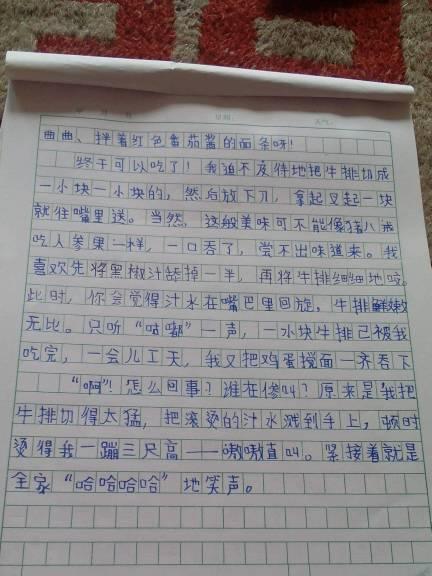 年 月 日 星期: 天气:
曲曲、拌着红色番茄酱的面条呀!
终于可以吃了!我迫不及待地把牛排切成
一小块一小块的,然后放下刀,拿起叉起一块
就往嘴里送。当然,这般美味可不能像猪八戒
吃人参果一样,一口吞了,尝不出味道来。我
喜欢先将黑椒汁舔掉一半,再将牛排细细地咬。
此时,你会觉得汁水在嘴巴里回旋,牛排鲜嫩
无比。只听“咕嘟”一声,一小块牛排已被我
吃完,一会儿工夫,我又把鸡蛋搅面一齐吞下
“啊”!怎么回事?谁在惨叫?原来是我把
牛排切得太猛,把滚烫的汁水溅到手上,顿时
烫得我一蹦三尺高——嗷嗷直叫。紧接着就是
全家“哈哈哈哈”地笑声。